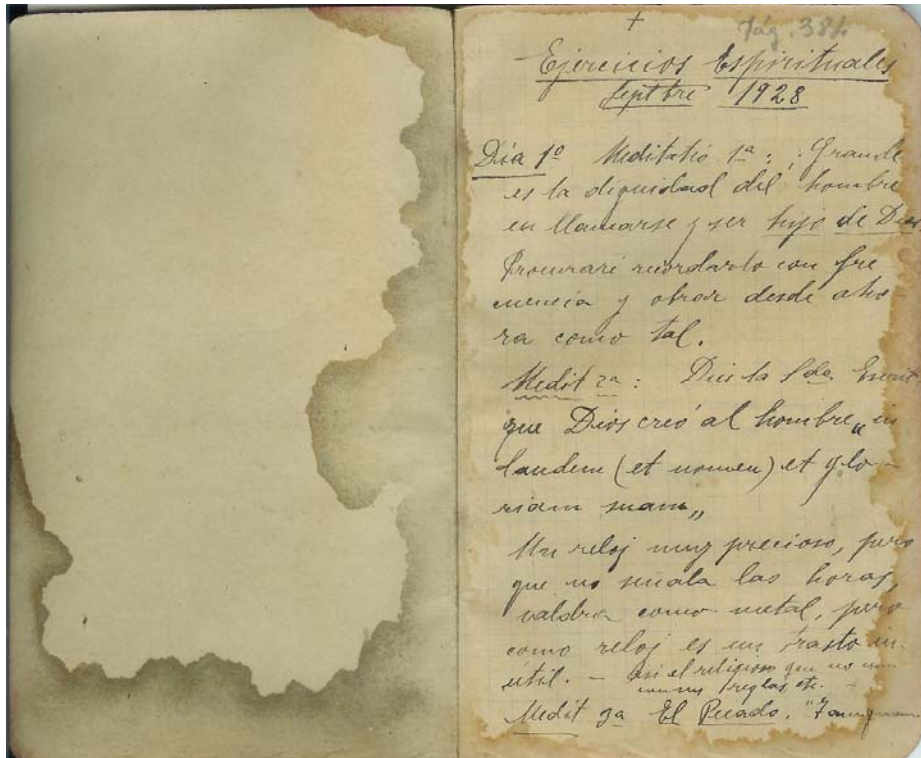 +
Pág. 384
Ejercicios Espirituales
Septbre 1928
Día 1º Meditatió 1ª: ¡Grande
es la dignidad del hombre
en llamarse y ser hijo de Dios.
Procuraré recordarlo con fre
cuencia y obrar desde aho-
ra como tal.
Medit 2ª: Dice la Sda Escrit
que Dios creó al hombre „in
laudem (et nomen) et glo-
riam suam„
Un reloj muy precioso, pero
que no señala las horas,
valdría como metal, pero
como reloj es un trasto in-
útil. – así el religioso que no
reglas etc. –
Medit 3a El Pecado. "Tamquam